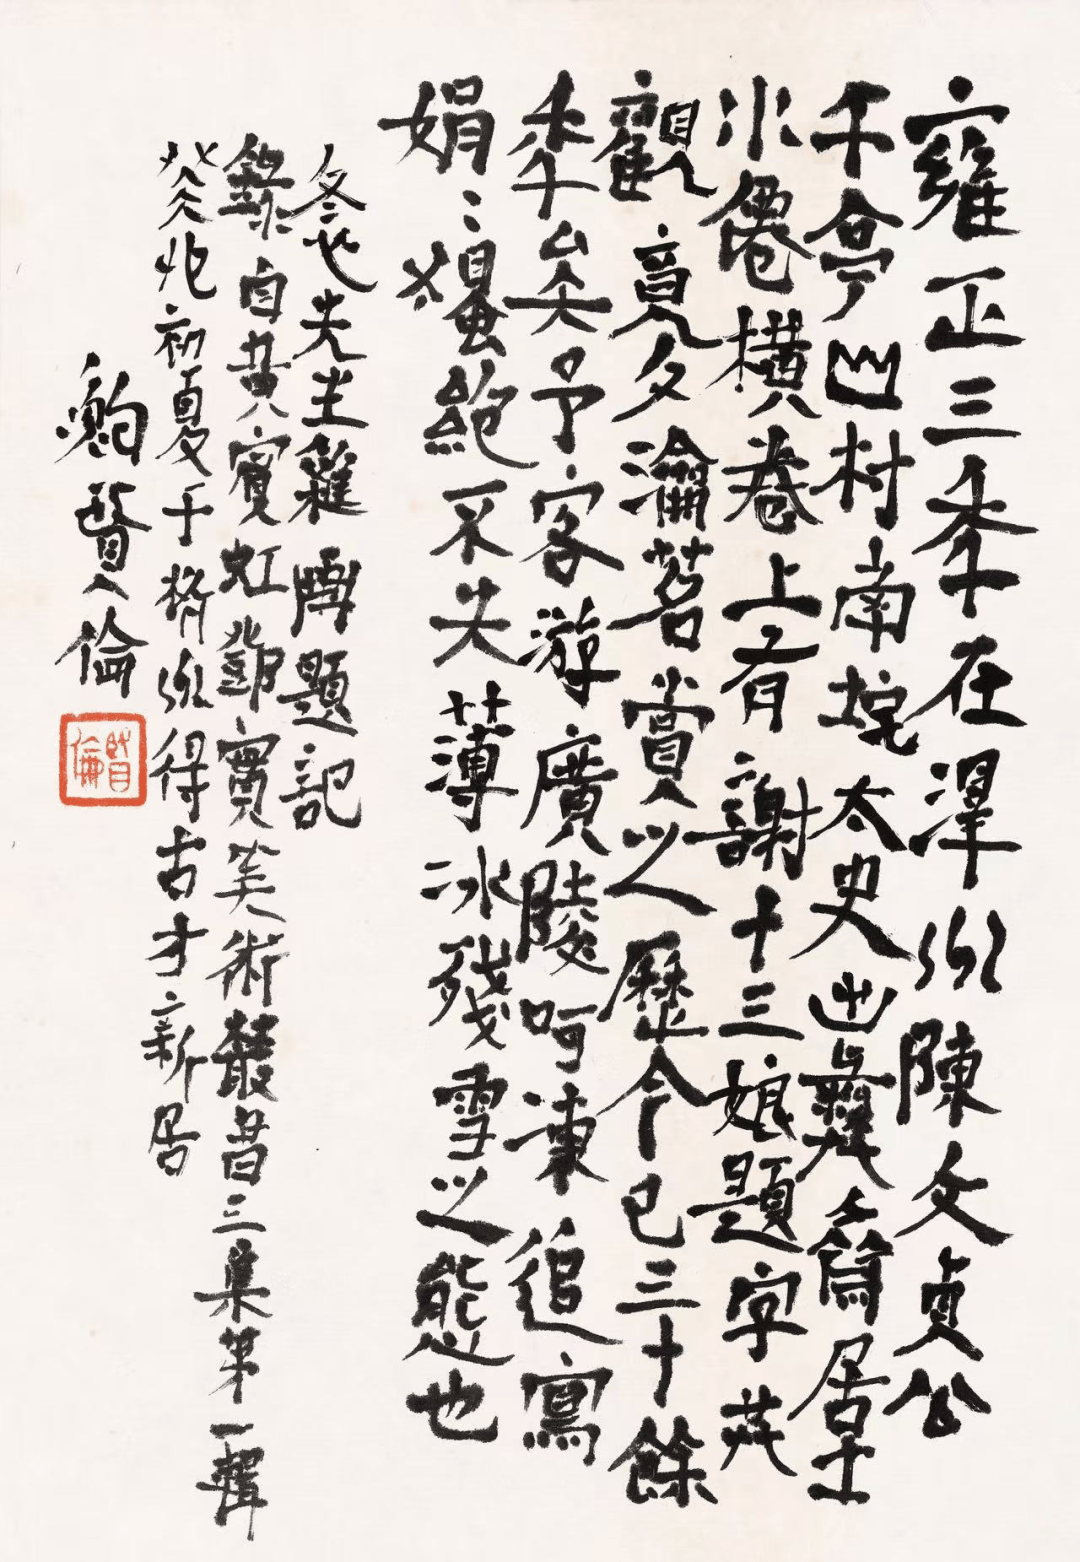 雍正三年在澤州陳文貞公
午亭山村南垞太史出彝齋居士
水僊橫卷上有謝十三娘題字共
觀竟夕瀹茗賞之歷今已三十餘
年矣予客游廣陵呵凍追寫
娟〻絕不失薄冰殘雪之態也
冬心先生雜畫題記
錄自黃賓虹鄧實美術叢書三集第一輯
癸卯初夏于州得古才新居
鮑賢倫
賢倫